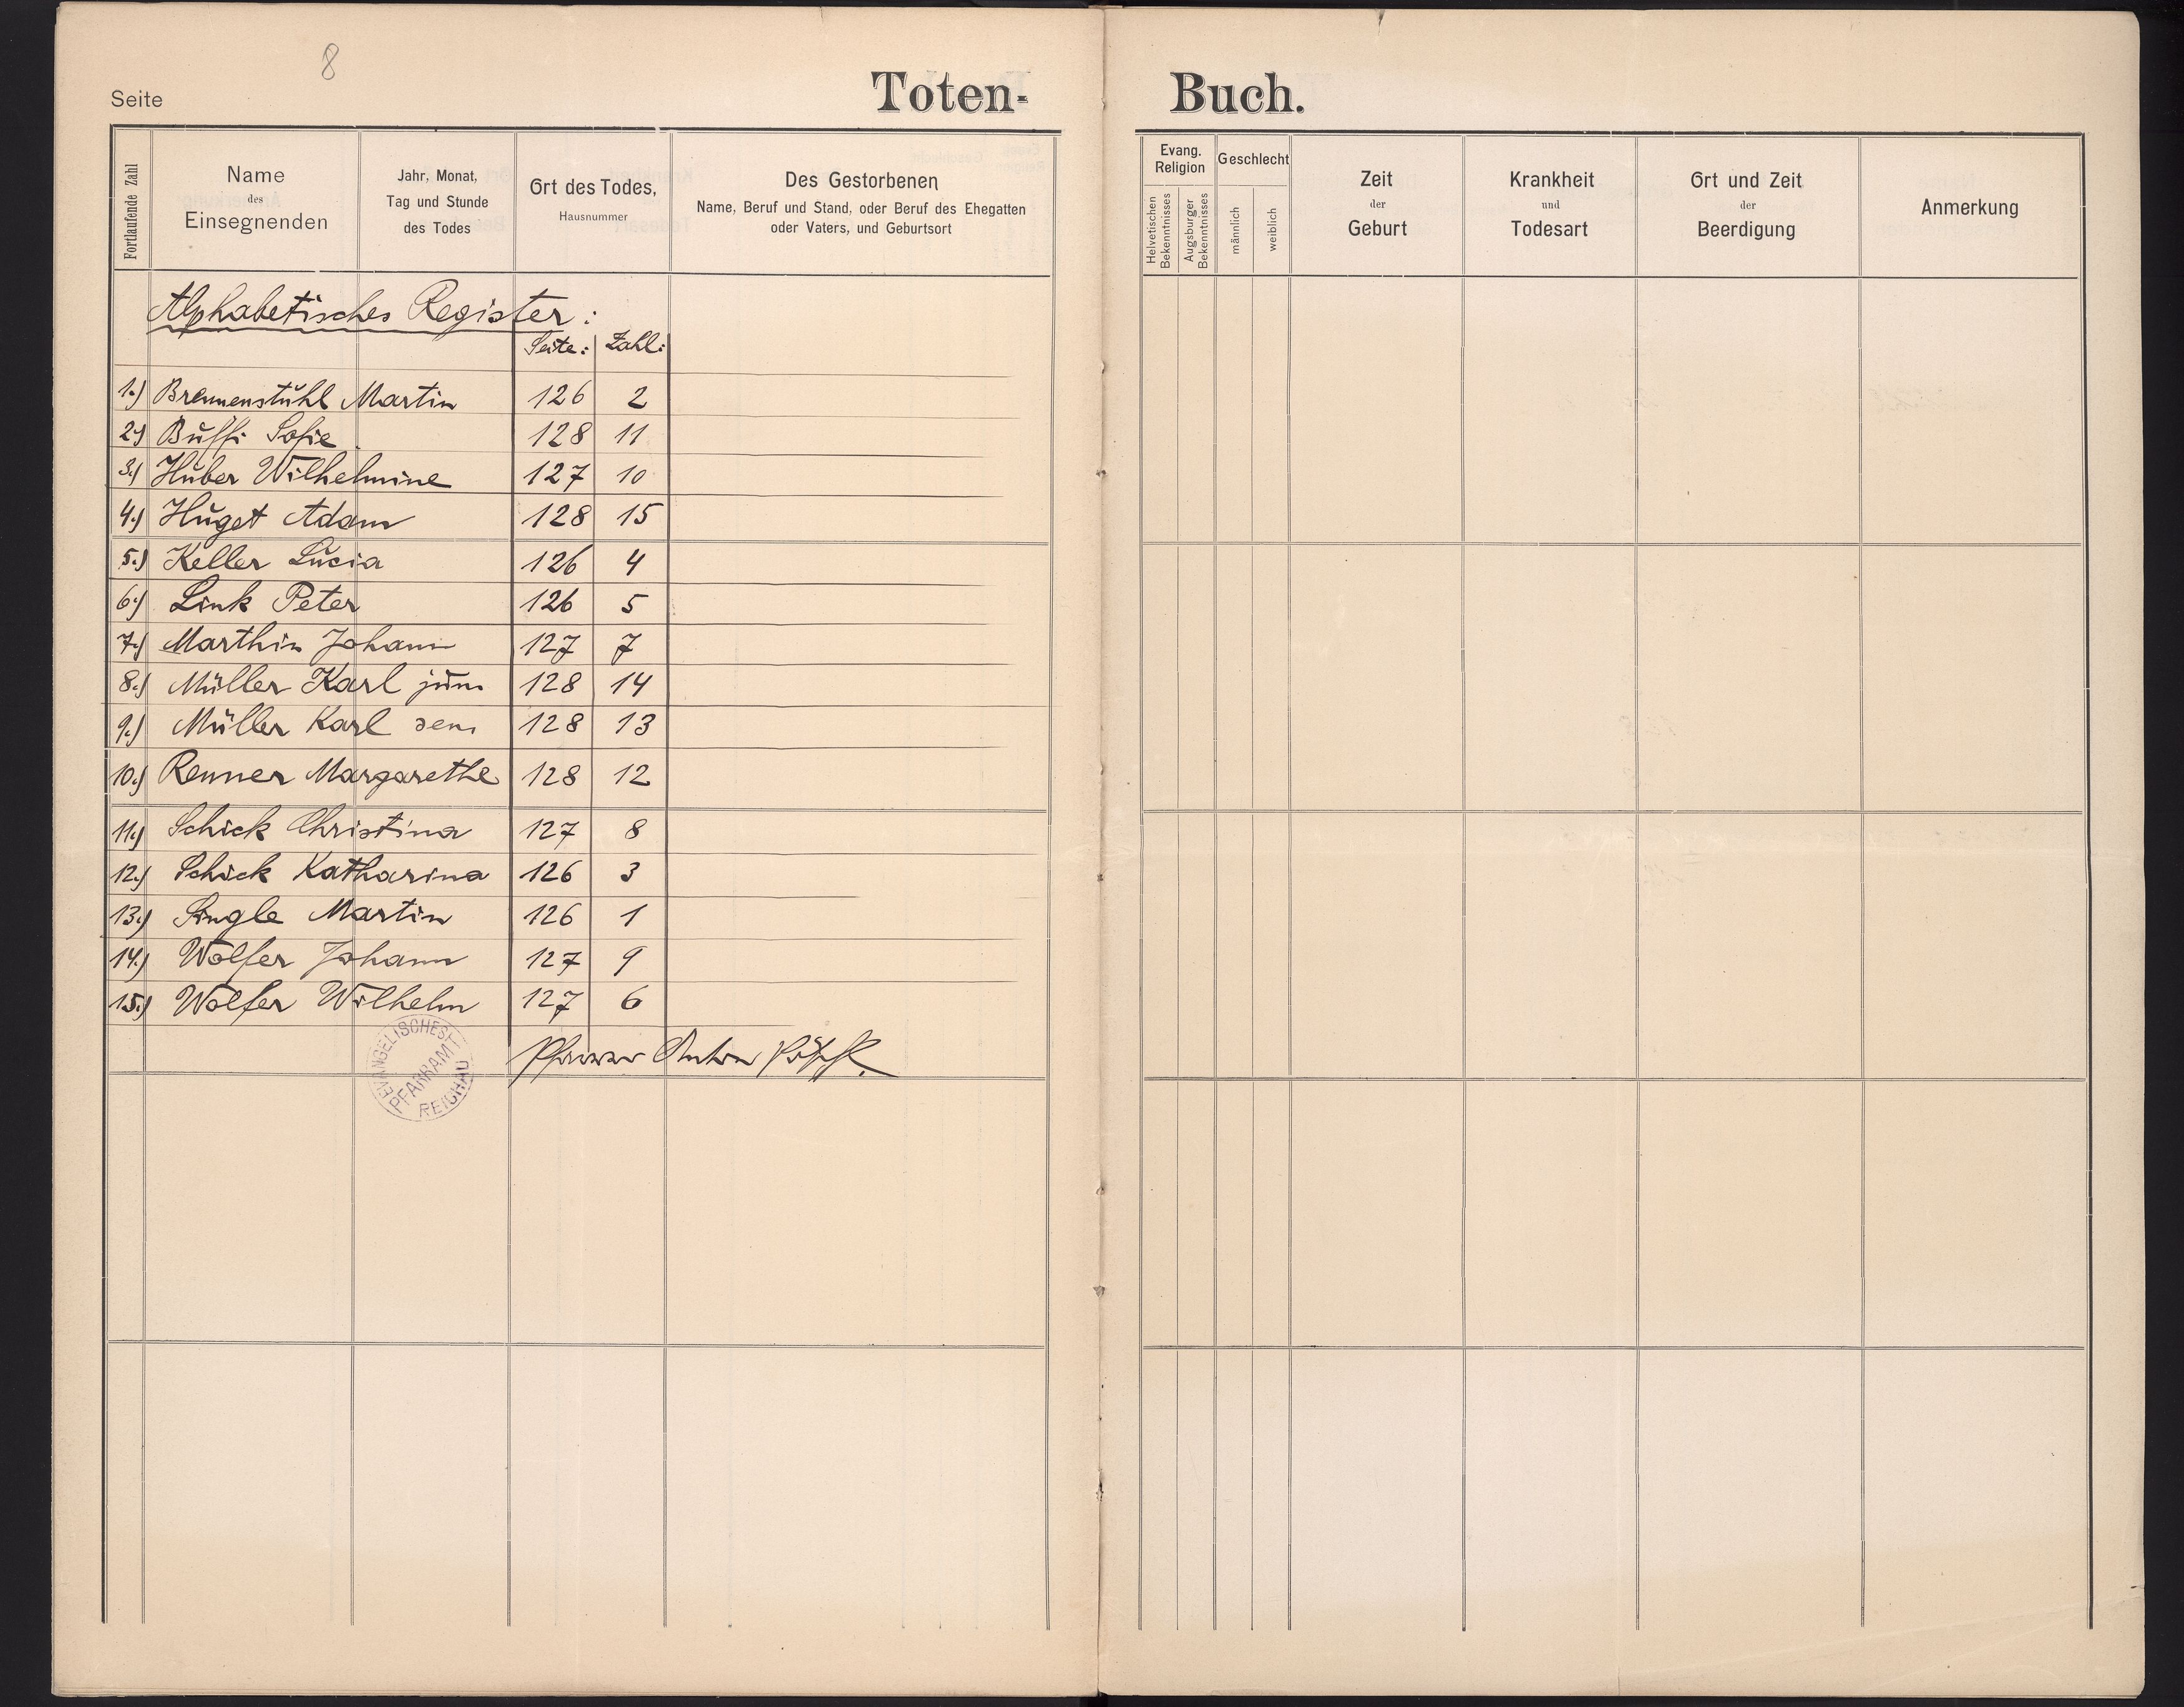 8
Seite
Toten-
Buch.
Fortlaufende Zahl
Name
des
Einsegnenden
Jahr, Monat,
Tag und Stunde
des Todes
Ort des Todes,
Hausnummer
Des Gestorbenen
Name, Beruf und Stand, oder Beruf des Ehegatten
oder Vaters, und Geburtsort
Evang.
Religion
Helvetischen
Bekenntnisses
Augsburger
Bekenntnisses
Geschlecht
männlich
weiblich
Zeit
der
Geburt
Krankheit
und
Todesart
Ort und Zeit
der
Beerdigung
Anmerkung
Alphabetisches Register:
Seite: Zahl:
1.) Brennenstuhl Martin 126 2
2.) Buffi Sofie 128 11
3.) Huber Wilhelmine 127 10
4.) Huget Adam 128 15
5.) Keller Lucia 126 4
6.) Link Peter 126 5
7.) Marthin Johann 127 7
8.) Müller Karl jun. 128 14
9.) Müller Karl sen. 128 13
10.) Renner Margarethe 128 12
11.) Schick Christina 127 8
12.) Schick Katharina 126 3
13.) Single Martin 126 1
14.) Wolfer Johann 127 9
15.) Wolfer Wilhelm 127 6
Pfarrer Anton
EVANGELISCHES
PFARRAMT
REICHAU